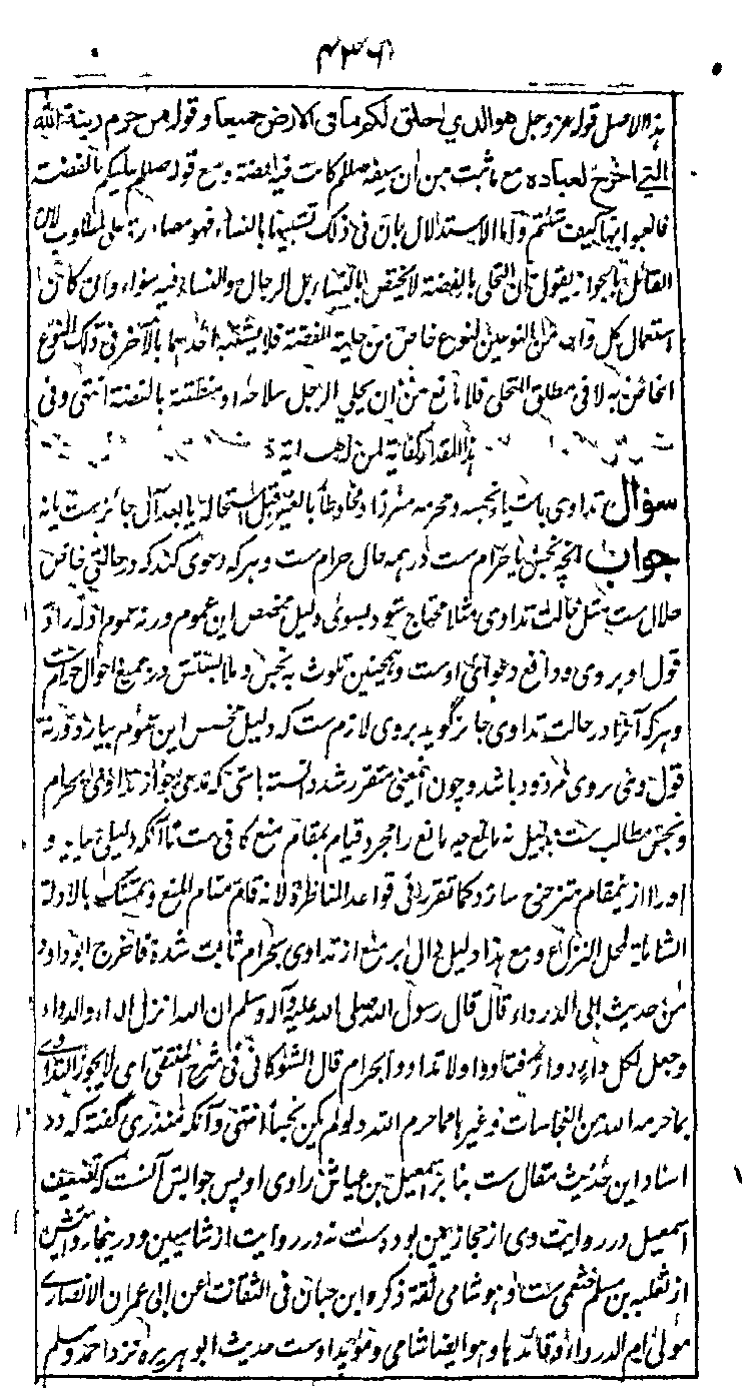 ۴۳۶
هذا الاصل قوله عز وجل هو الذي خلق لكم ما فی الارض جمیعا و قوله من حرم زینة الله
التی اخرج لعباده مع ما ثبت من ان سیفه صللم کانت فیه فضة و مع قوله صللم علیکم بالفضة
فالعبوا بها کیف شئتم و اما الاستدلال بان فی ذلک تشبیها بالنساء فهو مصادرة علی المطلوب لان
القائل بالجواز یقول ان التحلی بالفضة لا یختص بالنساء بل الرجال و النساء فیه سواء و ان کان
استعمال کل واحد من النوعین لنوع خاص من حلیة الفضة فلا یشتبه احدهما بالآخر فی ذلک النوع
الخاص به لا فی مطلق التحلی فلا مانع من ان یحلی الرجل سلاحه او منطقته بالفضة انتهی و فی
هذا المقدار کفایة لمن له هدایة
سؤال تداوی باشیاء نجسه و محرمه منفردا و مخلوطا بالغیر قبل استحاله یا بعد آن جائز ست یا نه
جواب آنچه نجس یا حرام ست در همه حال حرام ست و هر که دعوی کند که در حالتی خاص
حلال ست مثل حالت تداوی مثلا محتاج شود بسوی دلیل مخصص این عموم ورنه عموم ادله راد
قول او بروی و دافع دعوای اوست و همچنین تلوث به نجس و ملابستش در جمیع احوال حرام ست
و هر که آنرا در حالت تداوی جائز گوید بروی لازم ست که دلیل مخصص این عموم بیارد ورنه
قول وی بروی مردود باشد و چون اینمعنی متقرر شد دانسته باشی که مدعی جواز تداوی بحرام
و نجس مطالب ست بدلیل نه مانع چه مانع را مجرد قیام بمقام منع کافی ست تا آنکه دلیلی بیاید و
او را از ینمقام متزحزح سازد کما تقرر فی قواعد المناظرة لانه قام مقام المنع و تمسک بالادلة
الشاملة لمحل النزاع و مع هذا دلیل دال بر منع از تداوی بحرام ثابت شده فاخرج ابو داود
من حدیث ابی الدرداء قال قال رسول الله صلی الله علیه و آله وسلم ان الله انزل الداء والدواء
وجعل لکل داء دواء فتداووا ولا تداووا بحرام قال الشوکانی فی شرح المنتقی ای لا یجوز التداوی
بما حرمه الله من النجاسات و غیرها مما حرم الله و لو لم یکن نجسا انتهی و آنکه منذری گفته که در
اسناد این حدیث مقال ست بنا بر اسمعیل بن عیاش راوی او پس جوابش آنست که تضعیف
اسمعیل در روایت وی از حجازیین بوده ست نه در روایت از شامیین و درینجا روایتش
از ثعلبه بن مسلم خثعمی ست و هو شامی ثقة ذکره ابن حبان فی الثقات عن ابی عمران الانصاری
مولی ام الدرداء و قائدها و هو ایضا شامی و مؤید اوست حدیث ابو هریره نزد احمد و مسلم